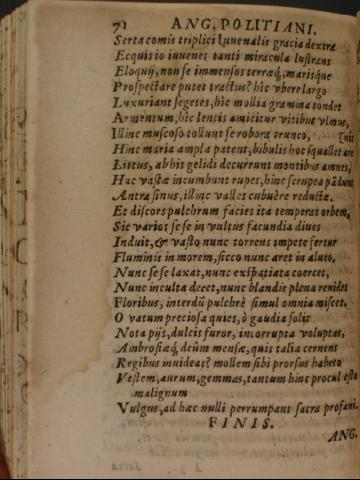 71 ANG. POLITIANI.
Serta comis triplici Iuuenalis gracia dextra
Ecquis io iuuenes tanti miracula lustrans
Eloquij, non se immensos terraq;, marisque
Prospectare putet tractus? hîc vbere largo
Luxuriant segetes, hîc mollia gramina tondet
Armentum, hîc lentis amicitur vitibus vlmus,
Illinc muscoso tollunt se robora trunco,
Hinc maria ampla patent, bibulis hoc squallet are
Littus, ab his gelidi decurrunt montibus amnes,
Huc vastæ incumbunt rupes, hinc scrupea pādunt
Antra sinus, illinc valles cubuêre reductæ.
Et discors pulchrum facies ita temperat orbem,
Sic varios se se in vultus facundia diues
Induit, & vasto nunc torrens impete fertur
Fluminis in morem, sicco nunc aret in alueo,
Nunc se se laxat, nunc exspatiata coercet,
Nunc inculta decet, nunc blandis plena renidet
Floribus, interdū pulchrè simul omnia miscet.
O vatum preciosa quies, ô gaudia solis
Nota pijs, dulcis furor, incorrupta voluptas,
Ambrosiæq́, deûm mensæ, quis talia cernens
Regibus inuideat? mollem sibi prorsus habeto
Vestem, aurum, gemmas, tantum hinc procul esto
malignum
Vulgus, ad hæc nulli perrumpant sacra profani.
FINIS.
ANG.